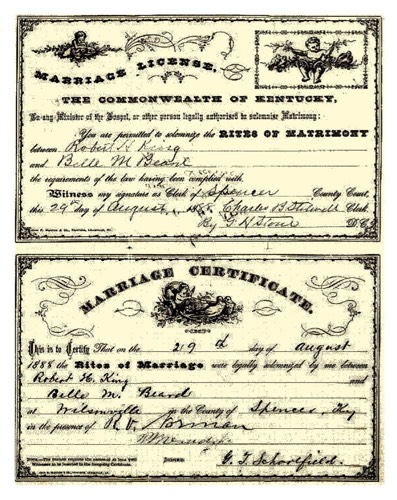 MARRIAGE LICENSE,
THE COMMONWEALTH OF KENTUCKY,
To any Minister of the Gospel, or other person legally authorized to solemnize Matrimony:
You are permitted to solemnize the RITES OF MATRIMONY
between Robert H King
and Belle M Beard
the requirements of the law having been complied with.
Witness my signature as Clerk of Spencer County Court,
this 29th day of August 188 Charles B Stilwell Clerk
By G H Stone D.C.
MARRIAGE CERTIFICATE.
This is to Certify That on the 29th day of August
1888 the Rites of Marriage were legally solemnized by me between
Robert H. King and
Belle M. Beard
at Wilsonville in the County of Spencer, Ky
in the presence of R. V.